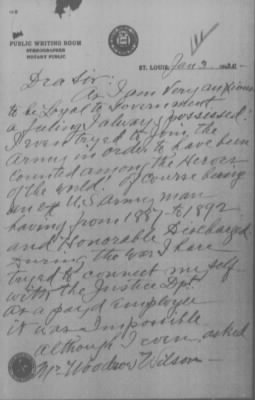 PUBLIC WRITING ROOM
STENOGRAPHER
NOTARY PUBLIC
ST. LOUIS, Jan 3.
Dear Sir:
As I am very anxious
to be Loyal to Government
a feeling I always possessed.
I even tryed to join the
Army in order to have been
counted among the Heroes
of the world. Of course being
an ex U.S. Army man
having from 1887 to 1892
and Honorable Discharged
During the war I have
tryed to connect myself
with the Justice Dpt.
as a payd employee
it was Impossible
although I even asked
Mr Woodrow Wilson